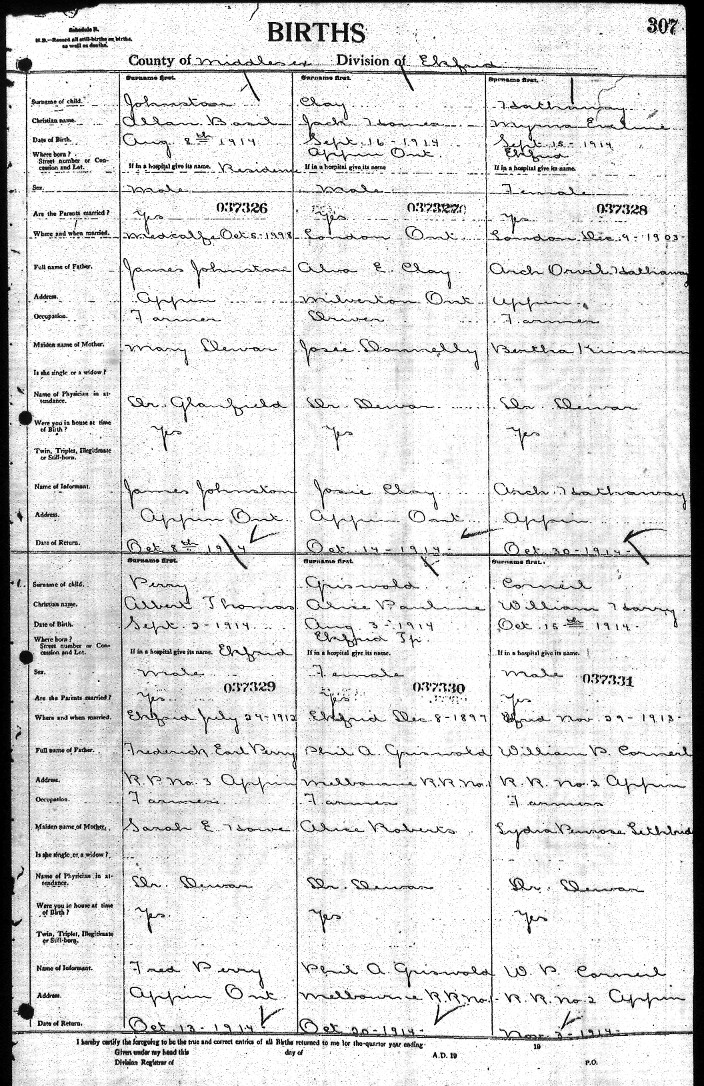 Schedule B.
N.B.—Record all still-births as births, as well as deaths.
BIRTHS
307
County of Middlesex Division of Ekfrid
Surname first. Surname first. Surname first.
Surname of child. Johnston Clay Hathaway
Christian name. Allan Basil Jack Myrna Eveline
Date of Birth. Aug 8th 1914 Sept. 16-1914 Sept. 18-1914
Where born? Appin Ont. Ekfrid
Street number or Concession and Lot. If in a hospital give its name. Residence If in a hospital give its name If in a hospital give its name.
Sex. Male Male Female
037326 037327 037328
Are the Parents married? Yes Yes Yes
Where and when married. Metcalfe Oct 5-1998 London Ont London Dec. 9-1903-
Full name of Father. James Johnston Alva E. Clay Arch Orvil Hathaway
Address. Appin Milverton Ont Appin
Occupation. Farmer Driver Farmer
Maiden name of Mother. Mary Dewar Josie Donnelly Bertha Kinsman
Is she single or a widow?
Name of Physician in attendance. Dr. Glanfield Dr. Dewar Dr. Dewar
Were you in house at time of Birth? Yes Yes Yes
Twin, Triplet, Illegitimate or Still-born.
Name of Informant. James Johnston Josie Clay Arch Hathaway
Address. Appin Ont. Appin Ont. Appin
Date of Return. Oct 8th 1914 Oct-14-1914- Oct 30-1914-
Surname first. Surname first. Surname first.
Surname of child. Perry Griswold Corneil
Christian name. Albert Thomas Alice Pauline William Harry
Date of Birth. Sept. 2-1914 Aug 3-1914 Oct. 15th 1914.
Where born? Ekfrid Tp.
Street number or Concession and Lot. If in a hospital give its name. Ekfrid If in a hospital give its name. If in a hospital give its name.
Sex. Male Female Male
037329 037330 037331
Are the Parents married? Yes Yes Yes
Where and when married. Ekfrid July 24-1912 Ekfrid Dec 8-1897 Ekfrid Nov 29-1913-
Full name of Father. Frederick Earl Perry Phil A. Griswold William P. Corneil
Address. R.R No. 3 Appin Melbourne R.R No. 1 R. R. No. 2 Appin
Occupation. Farmer Farmer Farmer
Maiden name of Mother. Sarah E. Howe Alice Roberts Lydia Penrose
Is she single or a widow?
Name of Physician in attendance. Dr. Dewar Dr. Dewar Dr. Dewar
Were you in house at time of Birth? Yes. Yes Yes
Twin, Triplet, Illegitimate or Still-born.
Name of Informant. Fred Perry Phil A Griswold W. P. Corneil
Address. Appin Ont Melbourne R.R No. 1 R. R. No 2 Appin
Date of Return. Oct 13-1914 Oct 20-1914- Nov. 3-1914-
I hereby certify the foregoing to be the true and correct entries of all Births returned to me for the quarter year ending 19
Given under my hand this day of A.D. 19
Division Registrar of P.O.